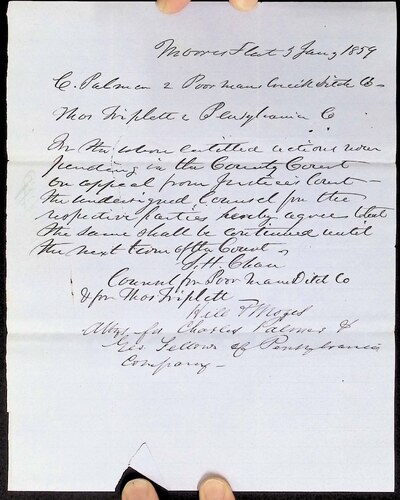 Moores Flat 3 Jany 1859
C. Palmer & Poor mans Creek Ditch Co
Thos Triplett & Pensylvania Co
In the above entitled actions now
pending in the County Court
on appeal from Justices Court
the undersigned Counsel for the
respective parties hereby agree that
the same shall be continued until
the next term of the Court
Counsel for Poor Mans Ditch Co
& for Thos Triplett
Attys for Charles Palmer &
Geo. Fellows of Pensylvania
Company